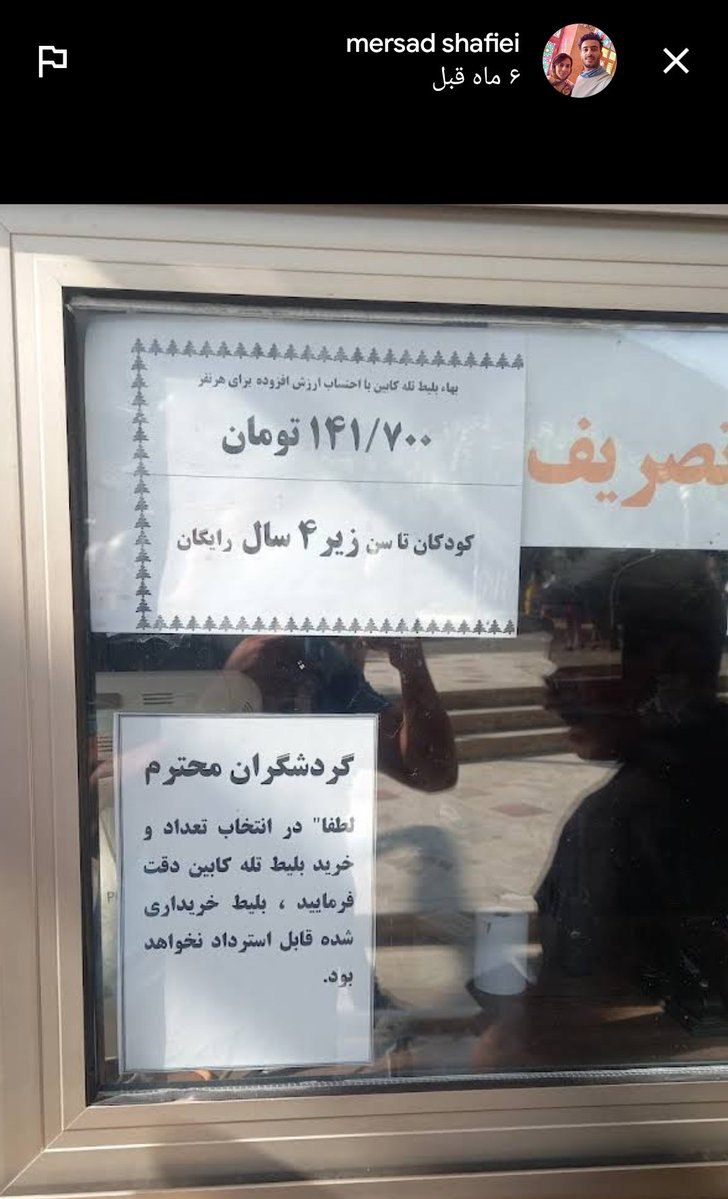 mersad shafiei
۶ ماه قبل
بهاء بلیط تله کابین با احتساب ارزش افزوده برای هرنفر
۱۴۱/۷۰۰ تومان
کودکان تا سن زیر ۴ سال رایگان
گردشگران محترم
لطفا" در انتخاب تعداد و
خرید بلیط تله کابین دقت
فرمایید ، بلیط خریداری
شده قابل استرداد نخواهد
بود.